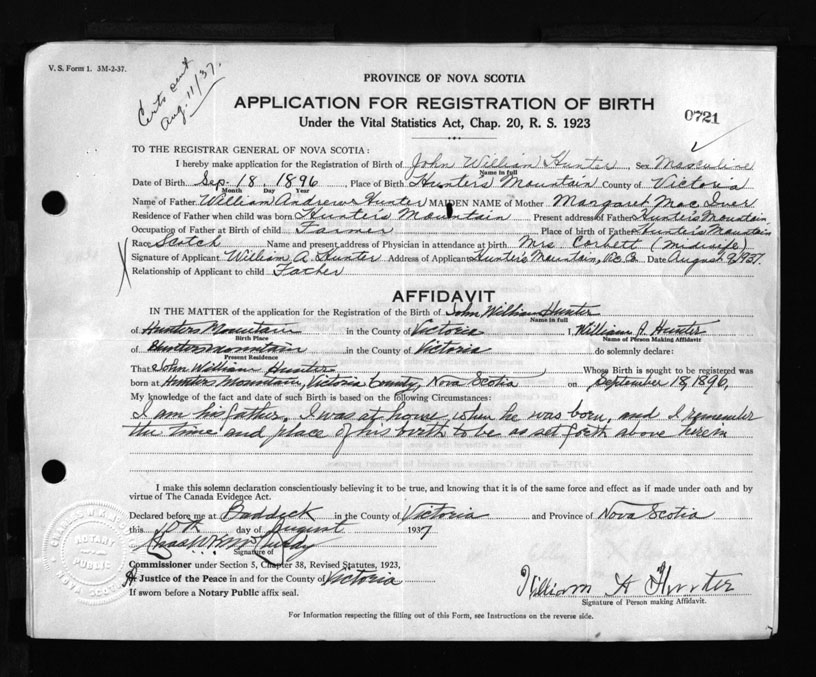 V. S. Form 1. 3M-2-37.
Certs sent
Aug. 11/37.
PROVINCE OF NOVA SCOTIA
APPLICATION FOR REGISTRATION OF BIRTH
0721
Under the Vital Statistics Act, Chap. 20, R. S. 1923
TO THE REGISTRAR GENERAL OF NOVA SCOTIA:
I hereby make application for the Registration of Birth of John William Hunter Sex Masculine
Name in full
Date of Birth Sep. 18, 1896 Place of Birth Hunters Mountain County of Victoria
Month Day Year
Name of Father William Andrew Hunter MAIDEN NAME of Mother Margaret Mac Iver
Residence of Father when child was born Hunter's Mountain Present address of Father Hunter's Mountain
Occupation of Father at Birth of child Farmer Place of birth of Father Hunter's Mountain
Race Scotch Name and present address of Physician in attendance at birth Mrs. Corbett (midwife)
Signature of Applicant William A. Hunter Address of Applicant Hunter's Mountain, Date August 9/937.
Relationship of Applicant to child Father
AFFIDAVIT
IN THE MATTER of the application for the Registration of the Birth of John William Hunter
Name in full
of Hunters Mountain in the County of Victoria I, William A. Hunter
Birth Place Name of Person Making Affidavit
of Hunters mountain in the County of Victoria do solemnly declare:
Present Residence
That John William Hunter Whose Birth is sought to be registered was
born at Hunters Mountain, Victoria County, Nova Scotia on September 18, 1896,
My knowledge of the fact and date of such Birth is based on the following Circumstances:
I am his father, I was at home when he was born, and I remember
the time and place of his birth to be as set forth above herein
I make this solemn declaration conscientiously believing it to be true, and knowing that it is of the same force and effect as if made under oath and by
virtue of The Canada Evidence Act.
Declared before me at Baddeck in the County of Victoria and Province of Nova Scotia
this 10th day of August 1937
Signature of
Commissioner under Section 5, Chapter 38, Revised Statutes, 1923,
A Justice of the Peace in and for the County of Victoria
If sworn before a Notary Public affix seal.
NOTARY
PUBLIC
NOVA SCOTIA
William A Hunter
Signature of Person making Affidavit.
For Information respecting the filling out of this Form, see Instructions on the reverse side.